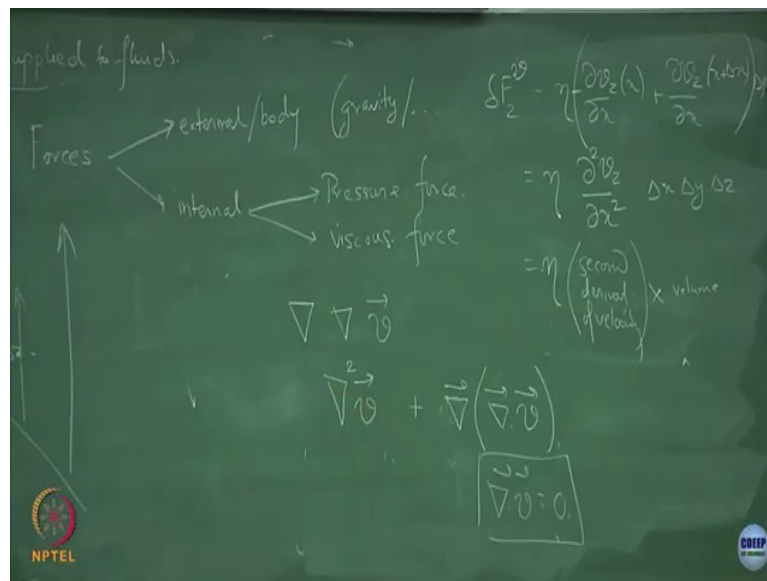 applied to fluids.
Forces
external/body (gravity/...
internal
Pressure force.
viscous force
δF₂^v = η(-∂v₂(x)/∂x + ∂v₂(x+Δx)/∂x)
= η ∂²v₂/∂x² Δx Δy Δz
= η (second derivat. of velocity) × volume
∇ ∇ v⃗
∇²v⃗ + ∇⃗(∇⃗.v⃗)
∇⃗.v⃗ = 0.
NPTEL
CDEEP